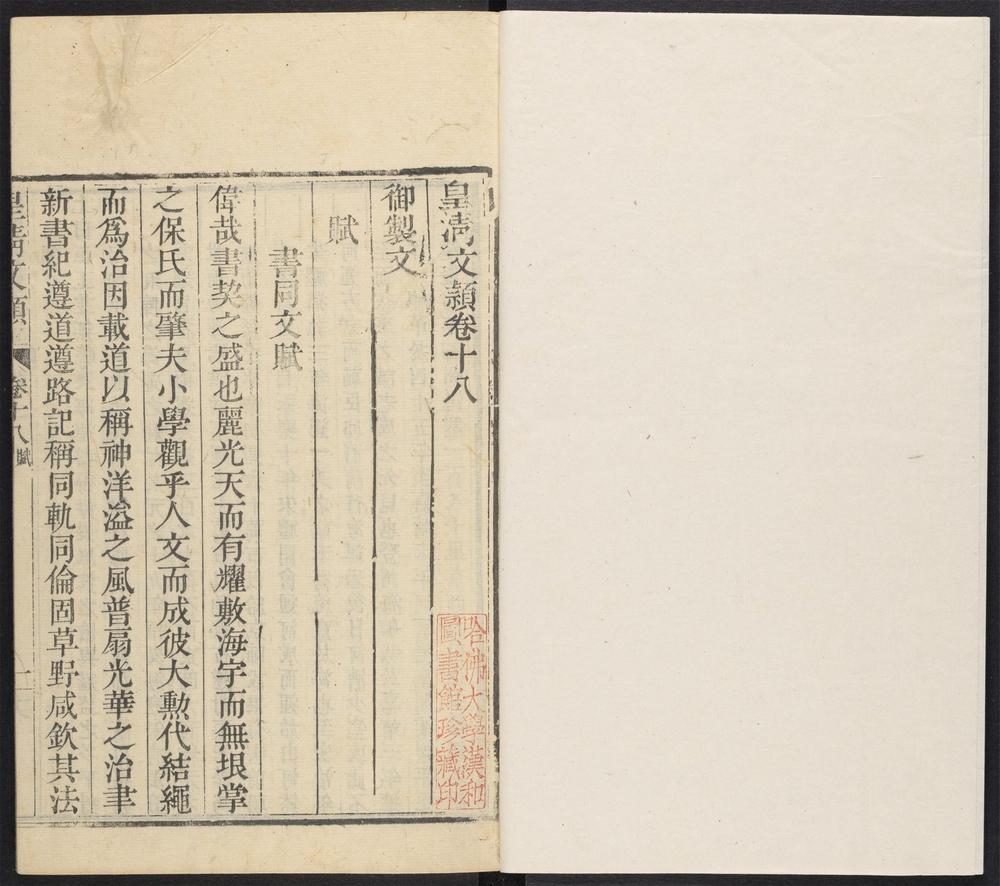 皇清文穎卷十八
御製文
賦
書同文賦
偉哉書契之盛也麗光天而有耀敷海宇而無垠掌
之保氏而肇夫小學觀乎人文而成彼大勲代結繩
而爲治因載道以稱神洋溢之風普扇光華之治聿
新書紀遵道遵路記稱同軌同倫固草野咸欽其法
皇清文穎
卷十八賦
一
哈佛大學漢和
圖書館珍藏印